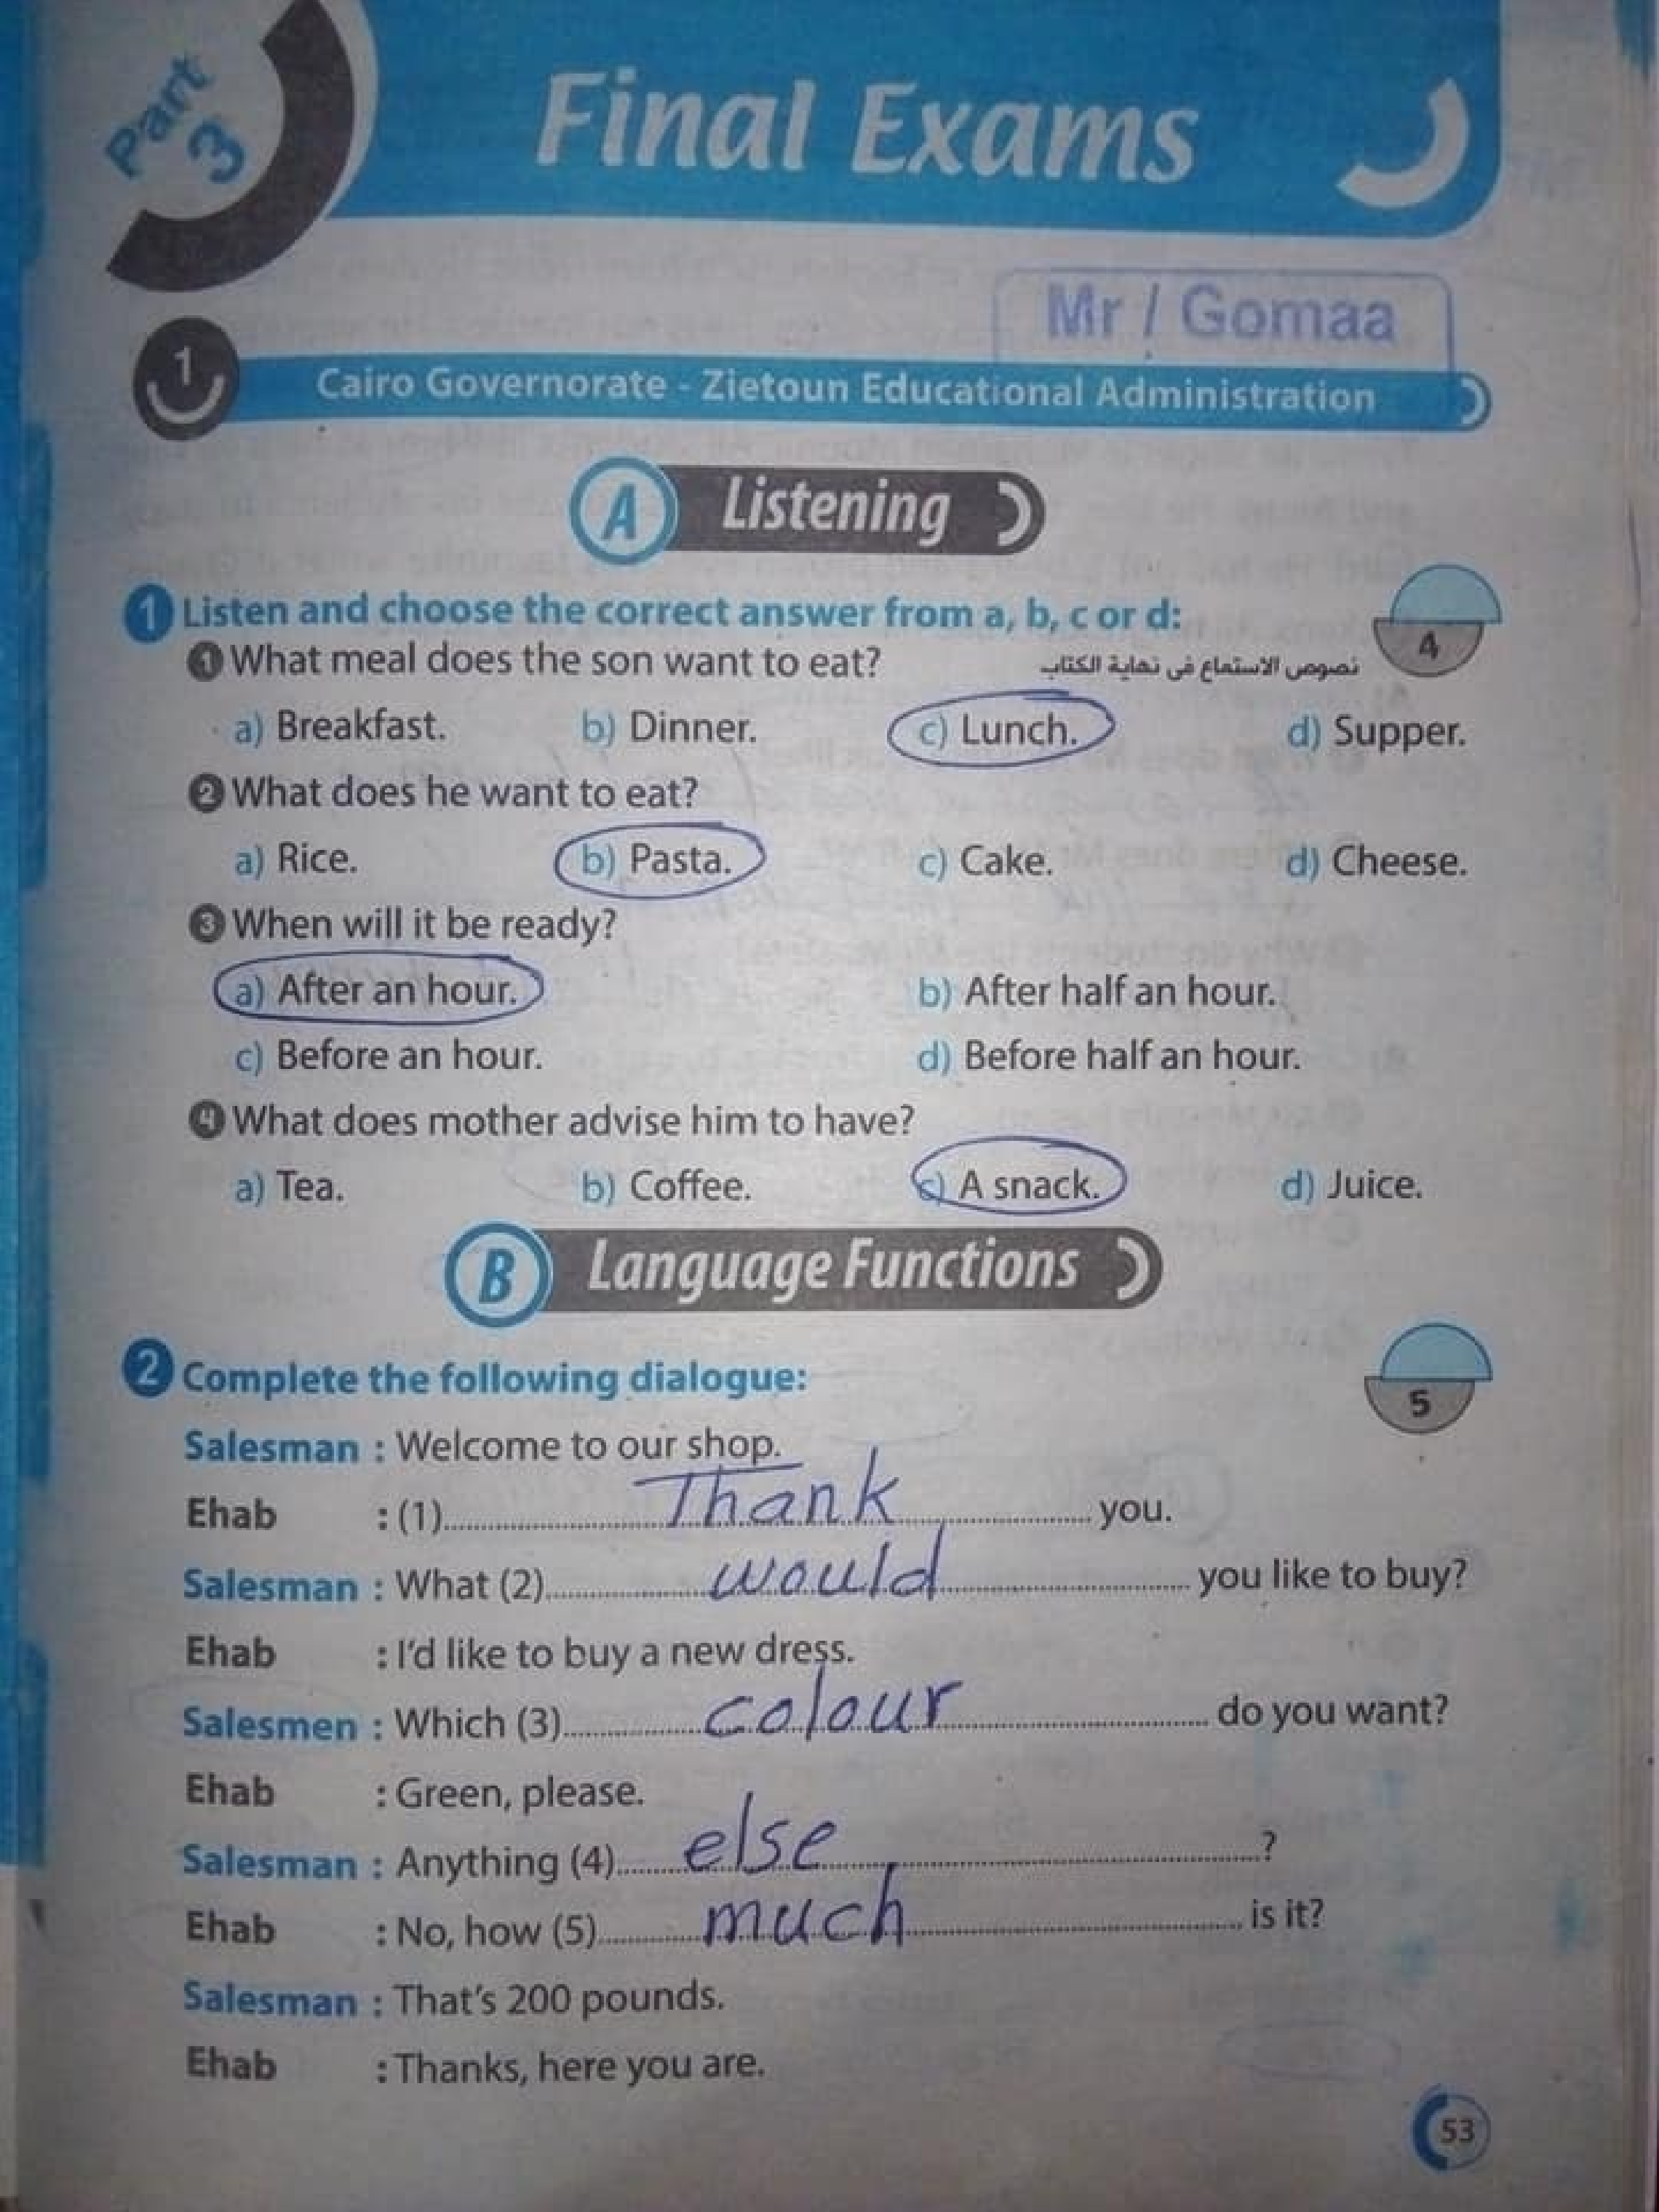 Part 3
Final Exams
Mr / Gomaa
1 Cairo Governorate - Zietoun Educational Administration
A Listening
1 Listen and choose the correct answer from a, b, c or d:
4
1 What meal does the son want to eat? نصوص الاستماع فى نهاية الكتاب
a) Breakfast. b) Dinner. c) Lunch. d) Supper.
2 What does he want to eat?
a) Rice. b) Pasta. c) Cake. d) Cheese.
3 When will it be ready?
a) After an hour. b) After half an hour.
c) Before an hour. d) Before half an hour.
4 What does mother advise him to have?
a) Tea. b) Coffee. c) A snack. d) Juice.
B Language Functions
2 Complete the following dialogue:
5
Salesman : Welcome to our shop.
Ehab : (1) Thank you.
Salesman : What (2) would you like to buy?
Ehab : I'd like to buy a new dress.
Salesmen : Which (3) colour do you want?
Ehab : Green, please.
Salesman : Anything (4) else ?
Ehab : No, how (5) much is it?
Salesman : That's 200 pounds.
Ehab : Thanks, here you are.
53